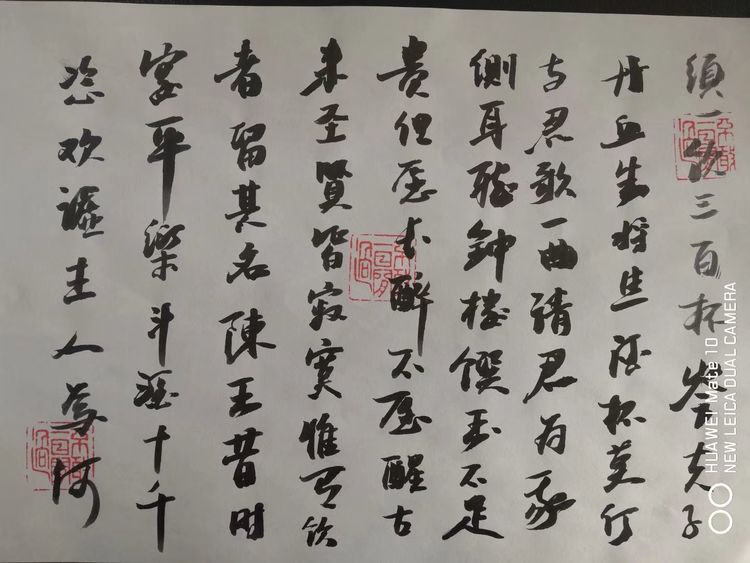 須一飲三百杯岑夫子
丹丘生将進酒杯莫停
与君歌一曲請君為我
側耳聽鐘楼饌玉不足
貴但愿长醉不愿醒古
来圣賢皆寂寞惟有饮
者留其名陳王昔时
宴平樂斗酒十千
恣欢謔主人為何
HUAWEI Mate 10
NEW LEICA DUAL CAMERA